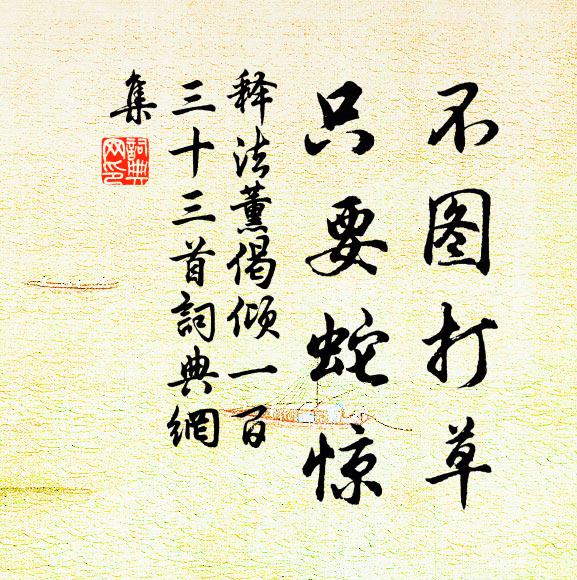 不图打草
只要蛇惊
释法薰偈倾一百
三十三首詞典網
集
詞典
网印